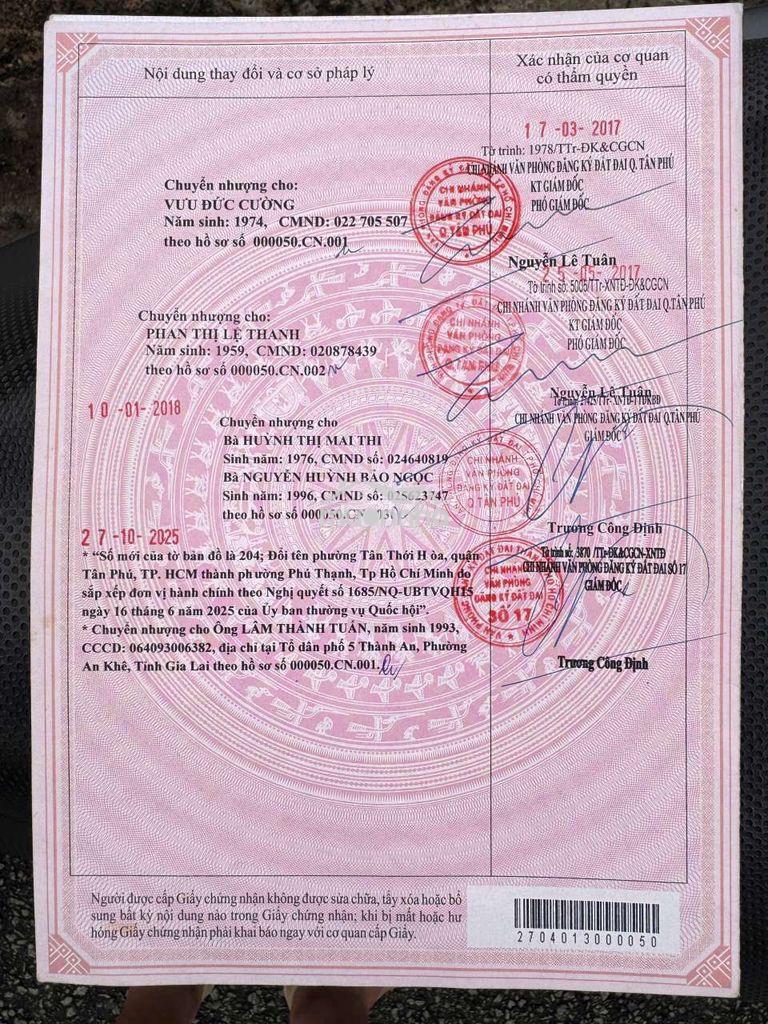 Nội dung thay đổi và cơ sở pháp lý
Xác nhận của cơ quan
có thẩm quyền
17-03-2017
Tờ trình: 1978/TTr-ĐK&CGCN
CHI NHÁNH VĂN PHÒNG ĐĂNG KÝ ĐẤT ĐAI Q. TÂN PHÚ
KT GIÁM ĐỐC
PHÓ GIÁM ĐỐC
Chuyển nhượng cho:
VƯU ĐỨC CƯỜNG
Năm sinh: 1974, CMND: 022 705 507
theo hồ sơ số 000050.CN.001
CHI NHÁNH
VĂN PHÒNG
ĐĂNG KÝ ĐẤT ĐAI
Q.TÂN PHÚ
Nguyễn Lê Tuân
25-05-2017
Tờ trình số: 5005/TTr-XNTĐ-ĐK&CGCN
CHI NHÁNH VĂN PHÒNG ĐĂNG KÝ ĐẤT ĐAI Q.TÂN PHÚ
KT GIÁM ĐỐC
PHÓ GIÁM ĐỐC
Chuyển nhượng cho:
PHAN THỊ LỆ THANH
Năm sinh: 1959, CMND: 020878439
theo hồ sơ số 000050.CN.002
CHI NHÁNH
VĂN PHÒNG
ĐĂNG KÝ ĐẤT ĐAI
Q.TÂN PHÚ
Nguyễn Lê Tuân
10-01-2018
CHI NHÁNH VĂN PHÒNG ĐĂNG KÝ ĐẤT ĐAI Q.TÂN PHÚ
GIÁM ĐỐC
Chuyển nhượng cho
Bà HUỲNH THỊ MAI THI
Sinh năm: 1976, CMND số: 024640819
Bà NGUYỄN HUỲNH BẢO NGỌC
Sinh năm: 1996, CMND số:
theo hồ sơ số 000050.CN.
CHI NHÁNH
VĂN PHÒNG
ĐĂNG KÝ ĐẤT ĐAI
Q.TÂN PHÚ
Trương Công Định
27-10-2025
Tờ trình số: 5870 /TTr-ĐK&CGCN-XNTĐ
CHI NHÁNH VĂN PHÒNG ĐĂNG KÝ ĐẤT ĐAI SỐ 17
GIÁM ĐỐC
* “Số mới của tờ bản đồ là 204; Đổi tên phường Tân Thới H òa, quận
Tân Phú, TP. HCM thành phường Phú Thạnh, Tp Hồ Chí Minh do
sắp xếp đơn vị hành chính theo Nghị quyết số 1685/NQ-UBTVQH15
ngày 16 tháng 6 năm 2025 của Ủy ban thường vụ Quốc hội”.
* Chuyển nhượng cho Ông LÂM THÀNH TUẤN, năm sinh 1993,
CCCD: 064093006382, địa chỉ tại Tổ dân phố 5 Thành An, Phường
An Khê, Tỉnh Gia Lai theo hồ sơ số 000050.CN.001.
CHI NHÁNH
VĂN PHÒNG
ĐĂNG KÝ ĐẤT ĐAI
SỐ 17
Trương Công Định
Người được cấp Giấy chứng nhận không được sửa chữa, tẩy xóa hoặc bổ
sung bất kỳ nội dung nào trong Giấy chứng nhận; khi bị mất hoặc hư
hỏng Giấy chứng nhận phải khai báo ngay với cơ quan cấp Giấy.
2704013000050